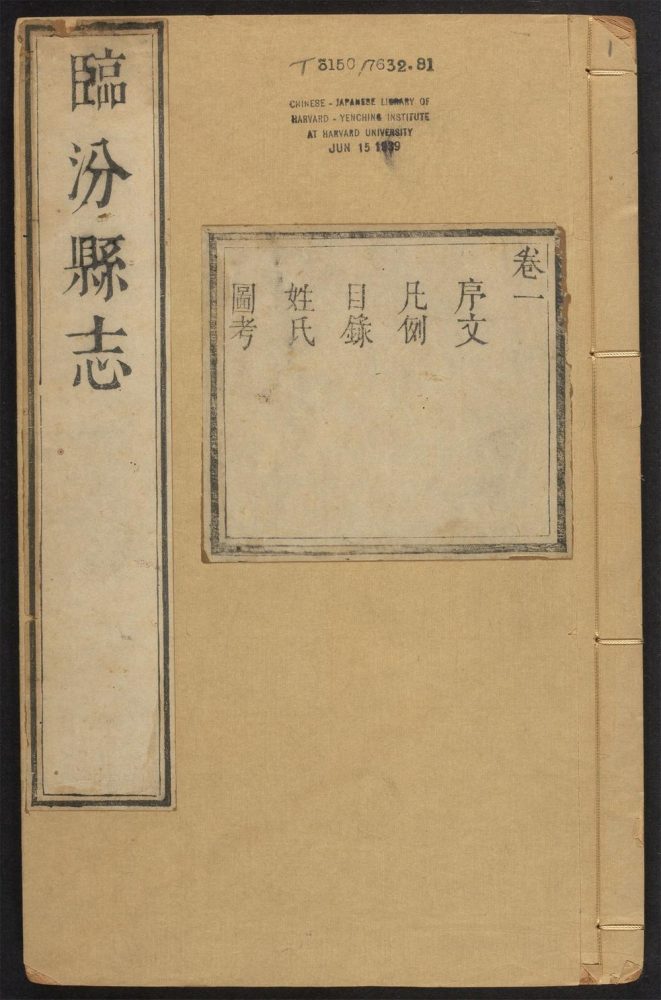 T 3150/7632.81
CHINESE - JAPANESE LIBRARY OF
HARVARD - YENCHING INSTITUTE
AT HARVARD UNIVERSITY
JUN 15 1939
1
臨汾縣志
卷一
序文
凡例
目錄
姓氏
圖考